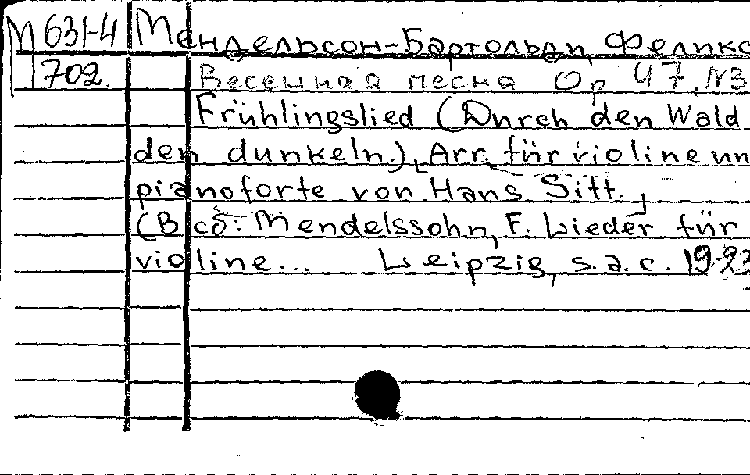 М 631-4 Мендельсон-Бартольди, Феликс
702. Весенняя песня Op 47, N3
Frühlingslied (Durch den Wald
den dunkeln.) [Arr. für violine un
pianoforte von Hans Sitt.]
(В сб: Mendelssohn, F. Lieder für
violine... Leipzig, s.a. c. 19-23